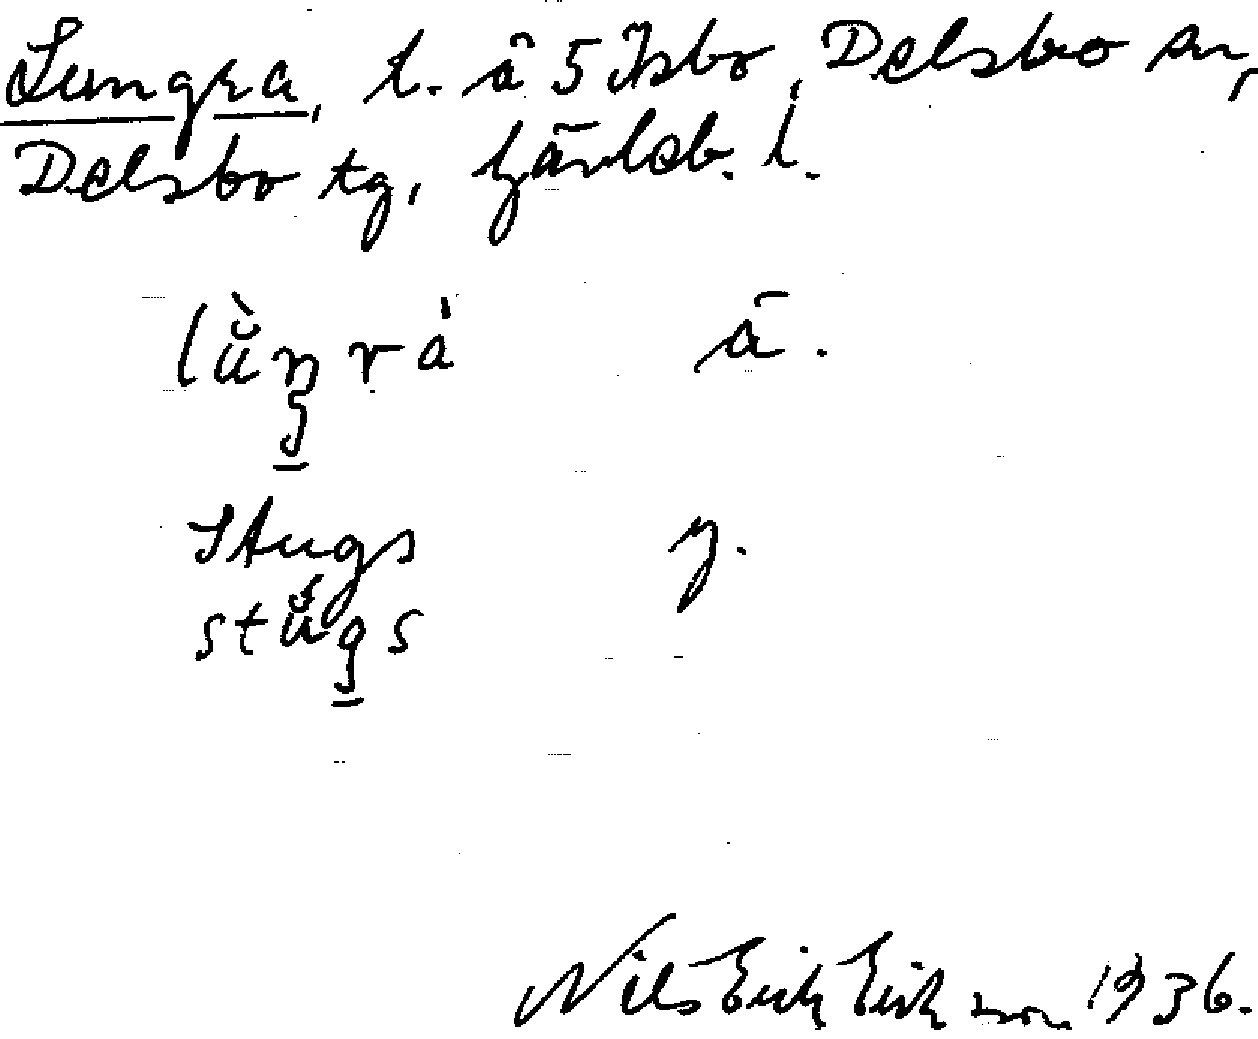 Lungra, t. å 5 Isbo, Delsbo sn,
Delsbo tg, Gävleb. l.
lùŋrá ä.
Stugs y.
stúgs
Nils Erik Eriksson 1936.